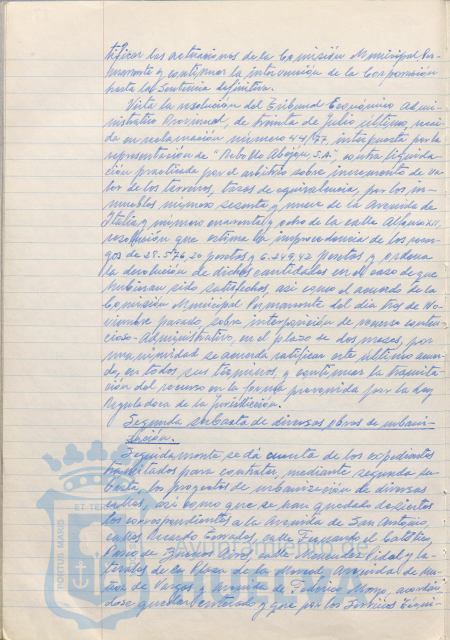 tificar las actuaciones de la Comisión Municipal Per-
manente y continuar la intervención de la Corporación
hasta la Sentencia definitiva.
Vista la resolución del Tribunal Económico Admi-
nistrativo Provincial, de treinta de Julio último, recaí-
da en reclamación número 44/77, interpuesta por la
representación de "Rebollo Abejón, S.A.", contra liquida-
ción practicada por el arbitrio sobre incremento de va-
lor de los terrenos, tasa de equivalencia, por los in-
muebles número sesenta y nueve de la Avenida de
Italia y número cuarenta y ocho de la calle Alfonso XII,
resolución que estima la improcedencia de los recar-
gos de 28.576,20 pesetas y 6.249,42 pesetas y ordena
la devolución de dichas cantidades en el caso de que
hubieran sido satisfechas así como el acuerdo de la
Comisión Municipal Permanente del día tres de No-
viembre pasado, sobre interposición de recurso conten-
cioso-Administrativo, en el plazo de dos meses, por
unanimidad se acuerda ratificar este último acuer-
do, en todos sus términos, y continuar la tramita-
ción del recurso en la forma prevenida por la Ley
Reguladora de la Jurisdicción.
Segunda subasta de diversas obras de urbani-
zación.
Seguidamente se dá cuenta de los expedientes
tramitados para contratar, mediante segunda su-
basta, los proyectos de urbanización de diversas
calles, así como que se han quedado desiertos
los correspondientes a la Avenida de San Antonio,
calles Ricardo Terrades, calle Fernando el Católico,
Paseo de Buenos Aires, calle Menéndez Pidal y la-
terales de la Plaza de la Merced, Avenida de Mu-
ñoz de Vargas y Avenida de Federico Mayo, acordán-
dose quedar enterado y que por los Servicios Técni-
PORTUS MARIS
ET TERRAE
AYUNTAMIENTO DE
HUELVA